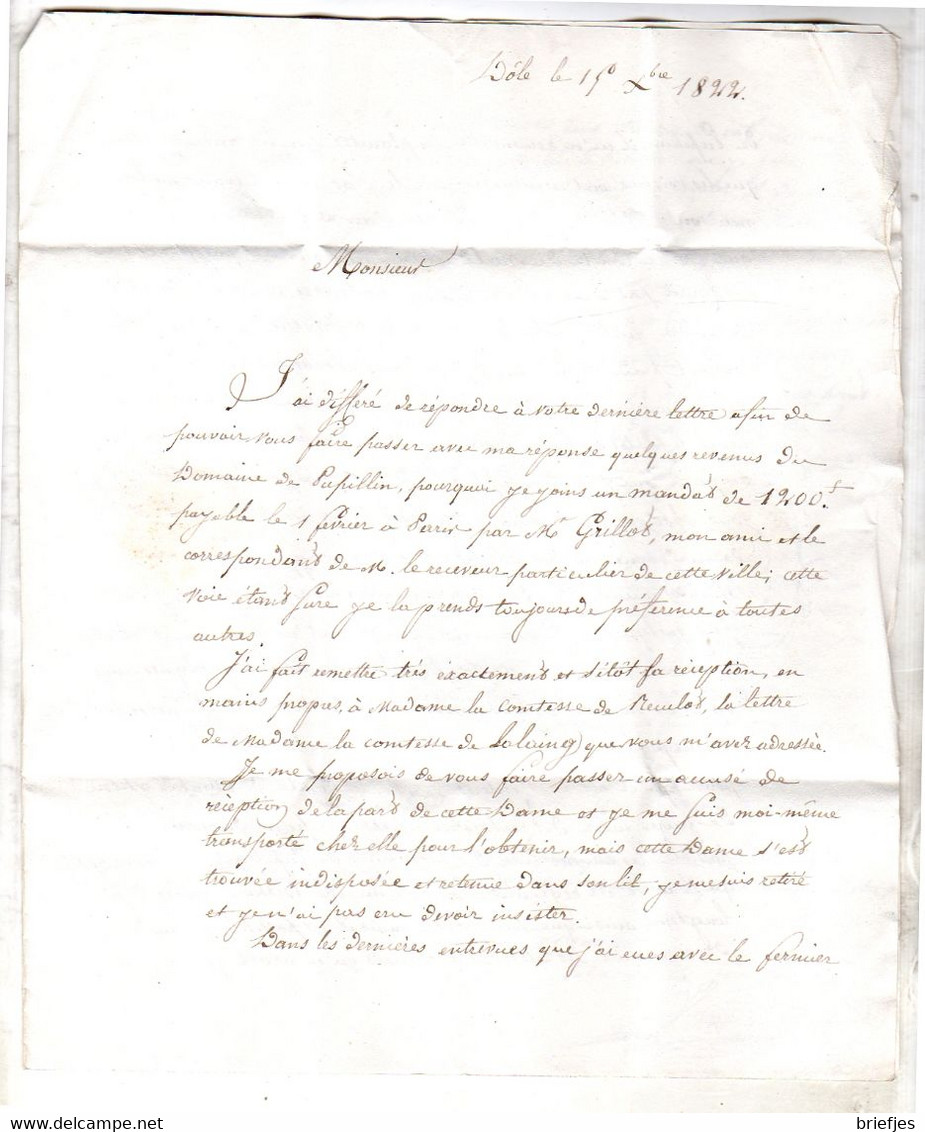 Dôle le 15 Xbre 1822.
Monsieur
J'ai différé de répondre à votre dernière lettre afin de
pouvoir vous faire passer avec ma réponse quelques revenus du
Domaine de Pupillin, pourquoi je joins un mandat de 1200.f
payable le 1 fevrier à Paris par Mr Grillot, mon ami et le
correspondant de M. le receveur particulier de cette ville; cette
voie étant sure je la prends toujours de préférence à toutes
autres.
J'ai fait remettre très exactement et sitôt sa réception, en
mains propres, à Madame la Comtesse de la lettre
de Madame la comtesse de Lalaing que vous m'avez adressée.
Je me proposois de vous faire passer un accusé de
réception de la part de cette Dame et je me suis moi-même
transporté chez elle pour l'obtenir, mais cette Dame s'est
trouvée indisposée et retenue dans son lit, je me suis retiré
et je n'ai pas cru devoir insister.
Dans les dernières entrevues que j'ai eues avec le fermier
briefjes